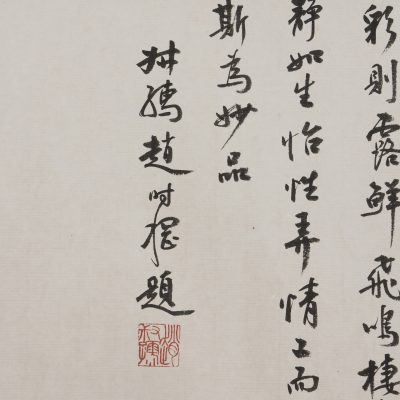 彩則露鮮飛鳴棲
靜如生怡性弄情工而
斯為妙品
叔孺趙时棡題